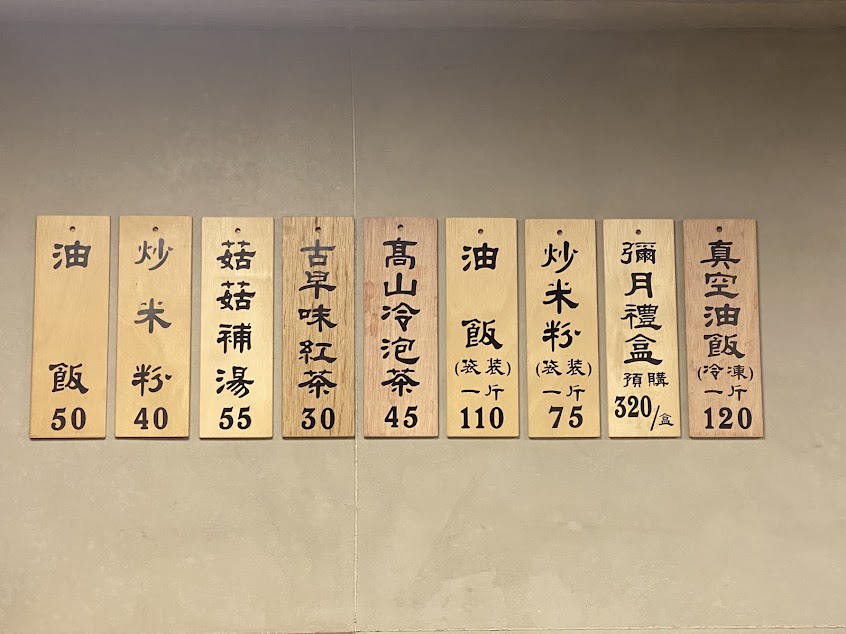 油飯
50
炒米粉
40
菇菇補湯
55
古早味紅茶
30
高山冷泡茶
45
油飯
(袋裝)
一斤
110
炒米粉
(袋裝)
一斤
75
彌月禮盒
預購
320/盒
真空油飯
(冷凍)
一斤
120